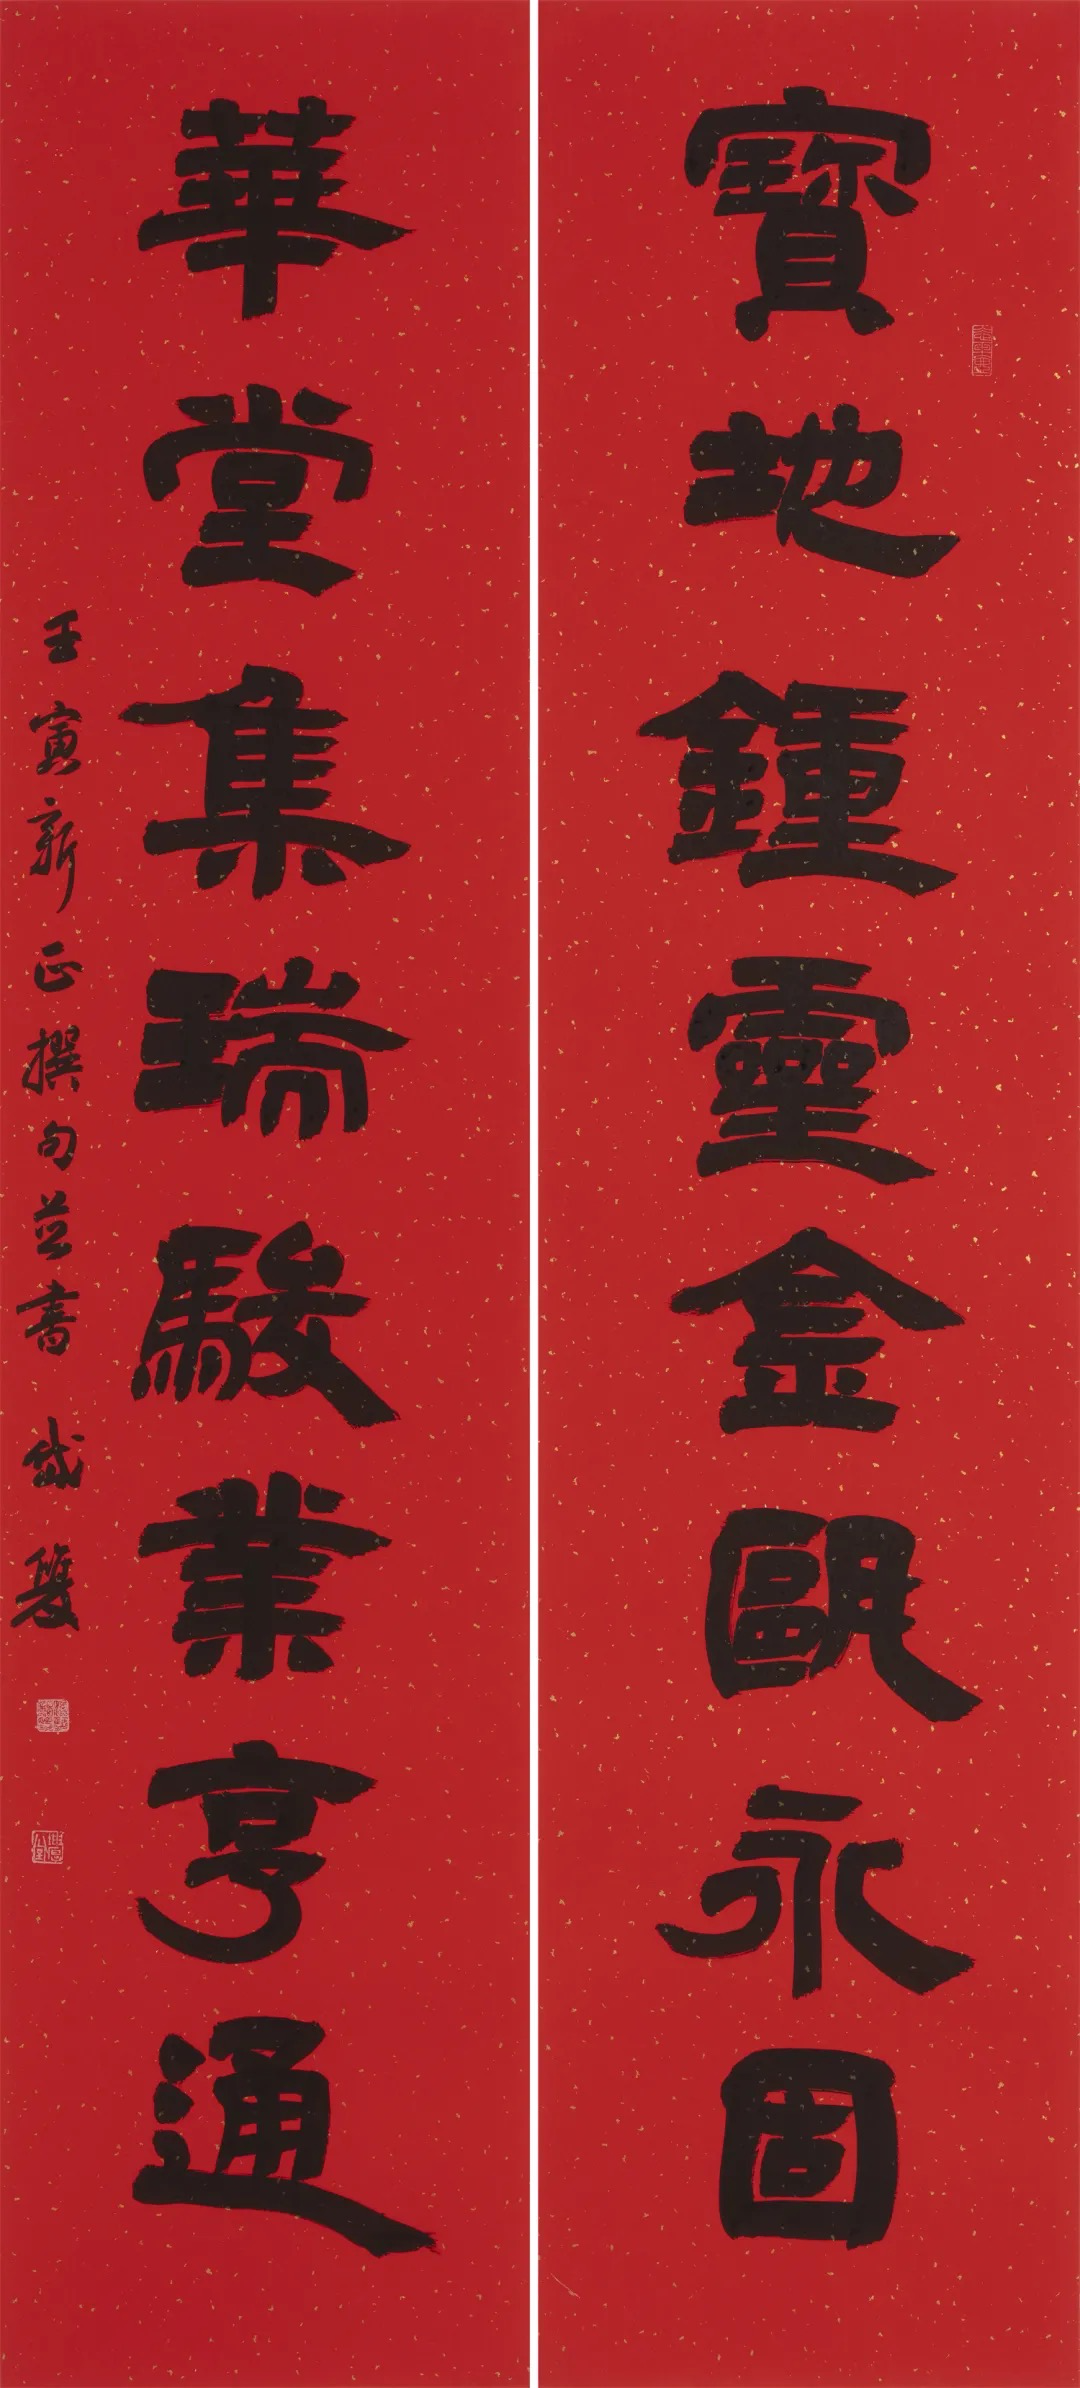 寶地鍾靈金甌永固
華堂集瑞駿業亨通
壬寅新正撰句並書 岱雙